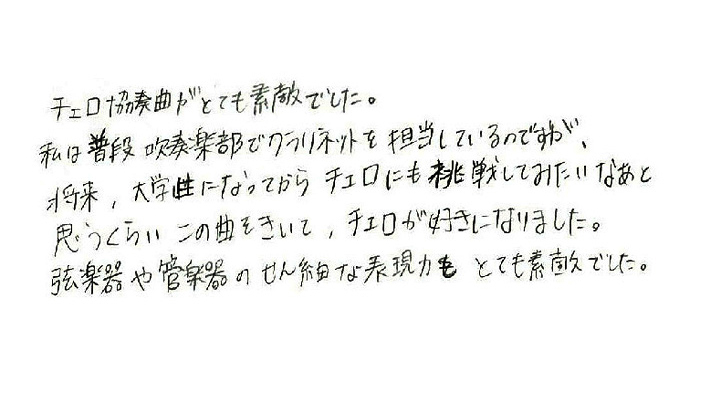 チェロ協奏曲がとても素敵でした。
私は普段吹奏楽部でクラリネットを担当しているのですが、
将来、大学生になってからチェロにも挑戦してみたいなあと
思うくらいこの曲をきいて、チェロが好きになりました。
弦楽器や管楽器のせん細な表現力もとても素敵でした。